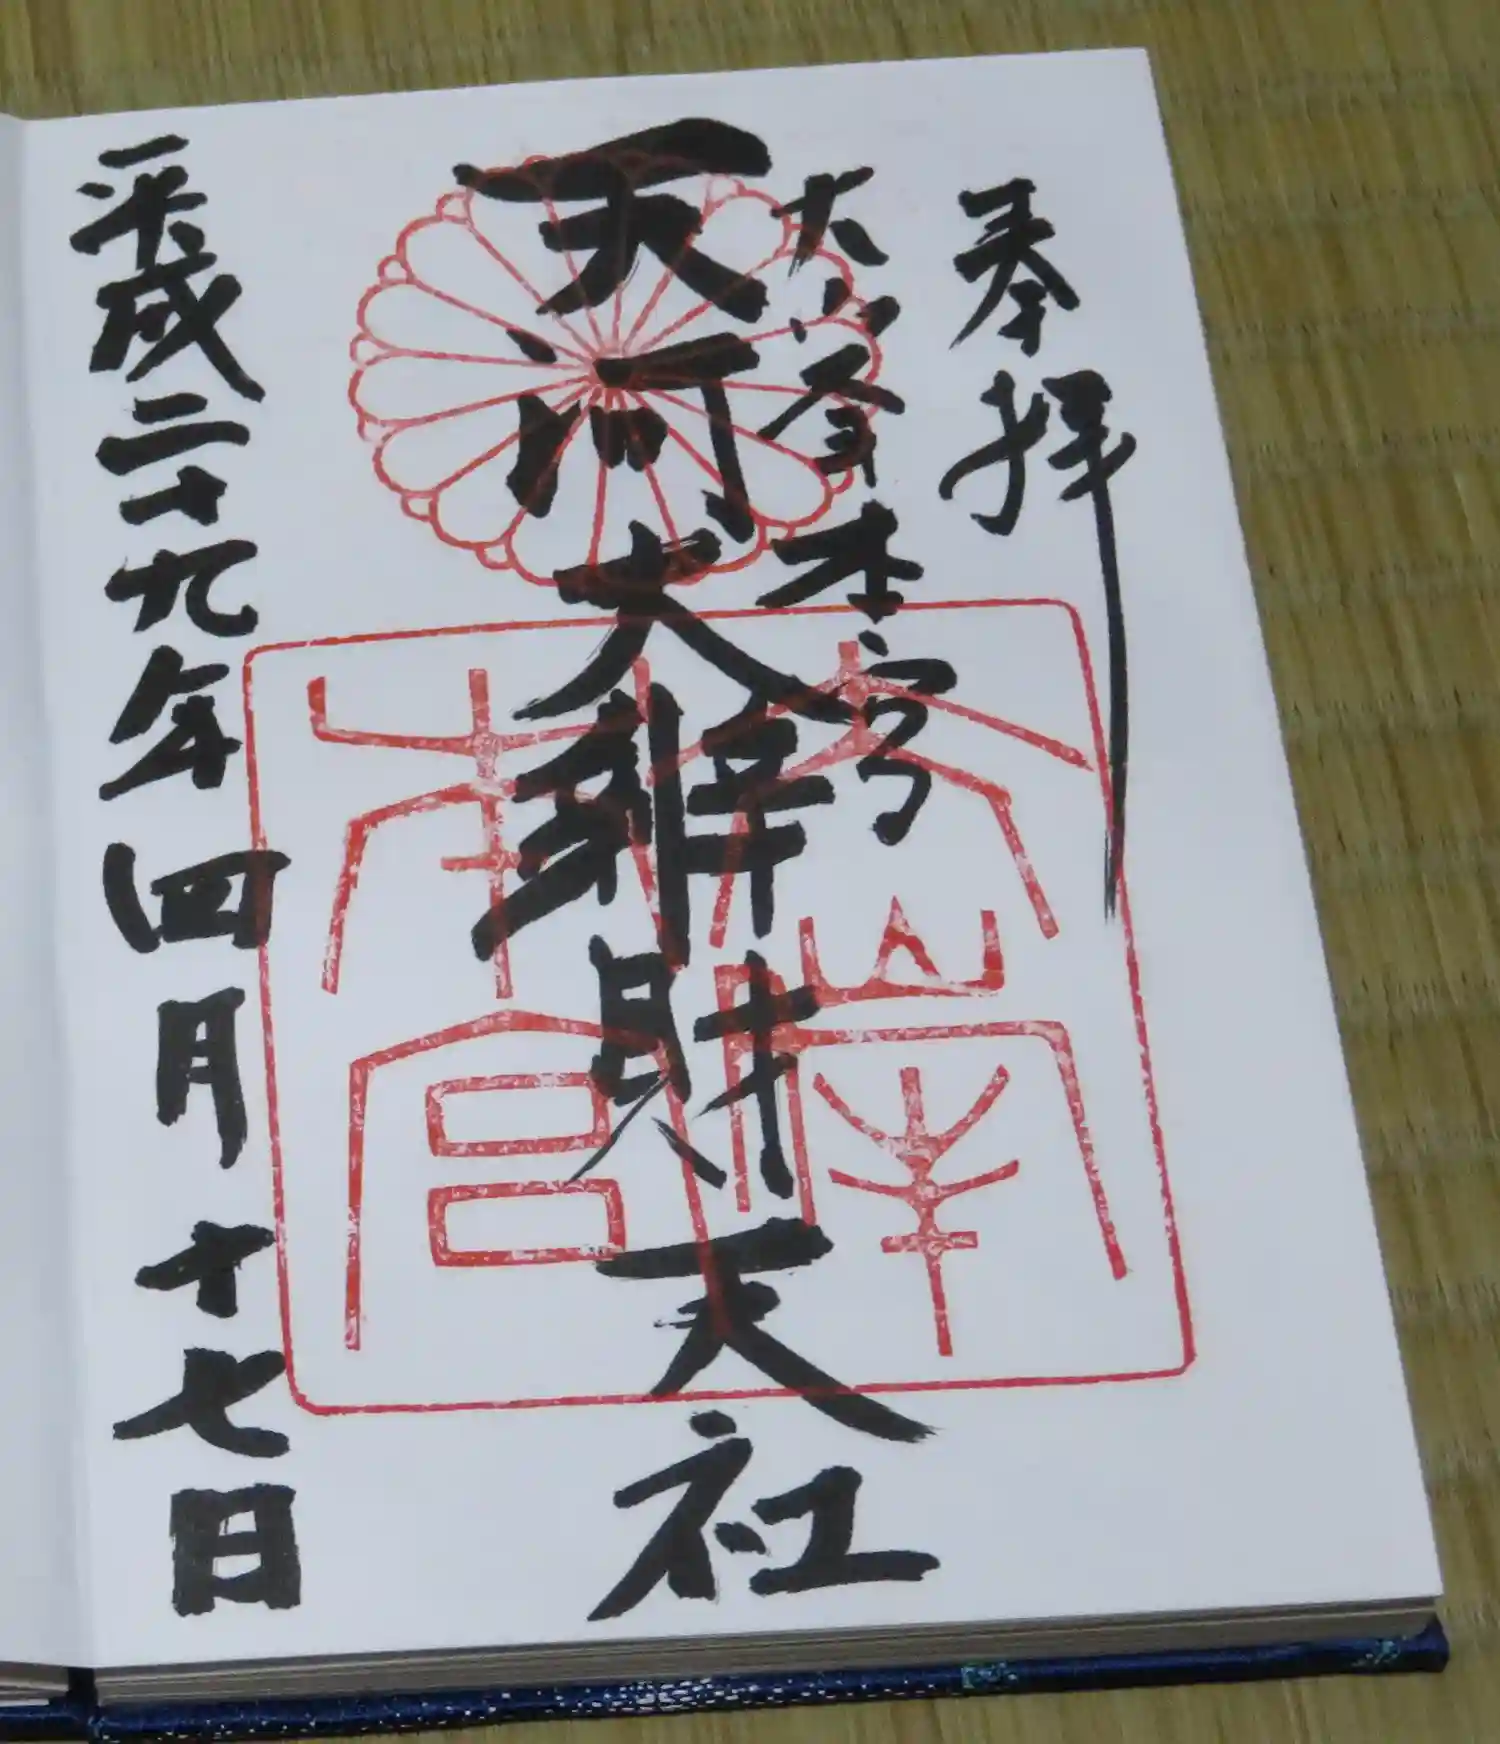 奉拝
大峯本宮
天河大辨財天社
平成二十九年四月十七日
大峯
本宮